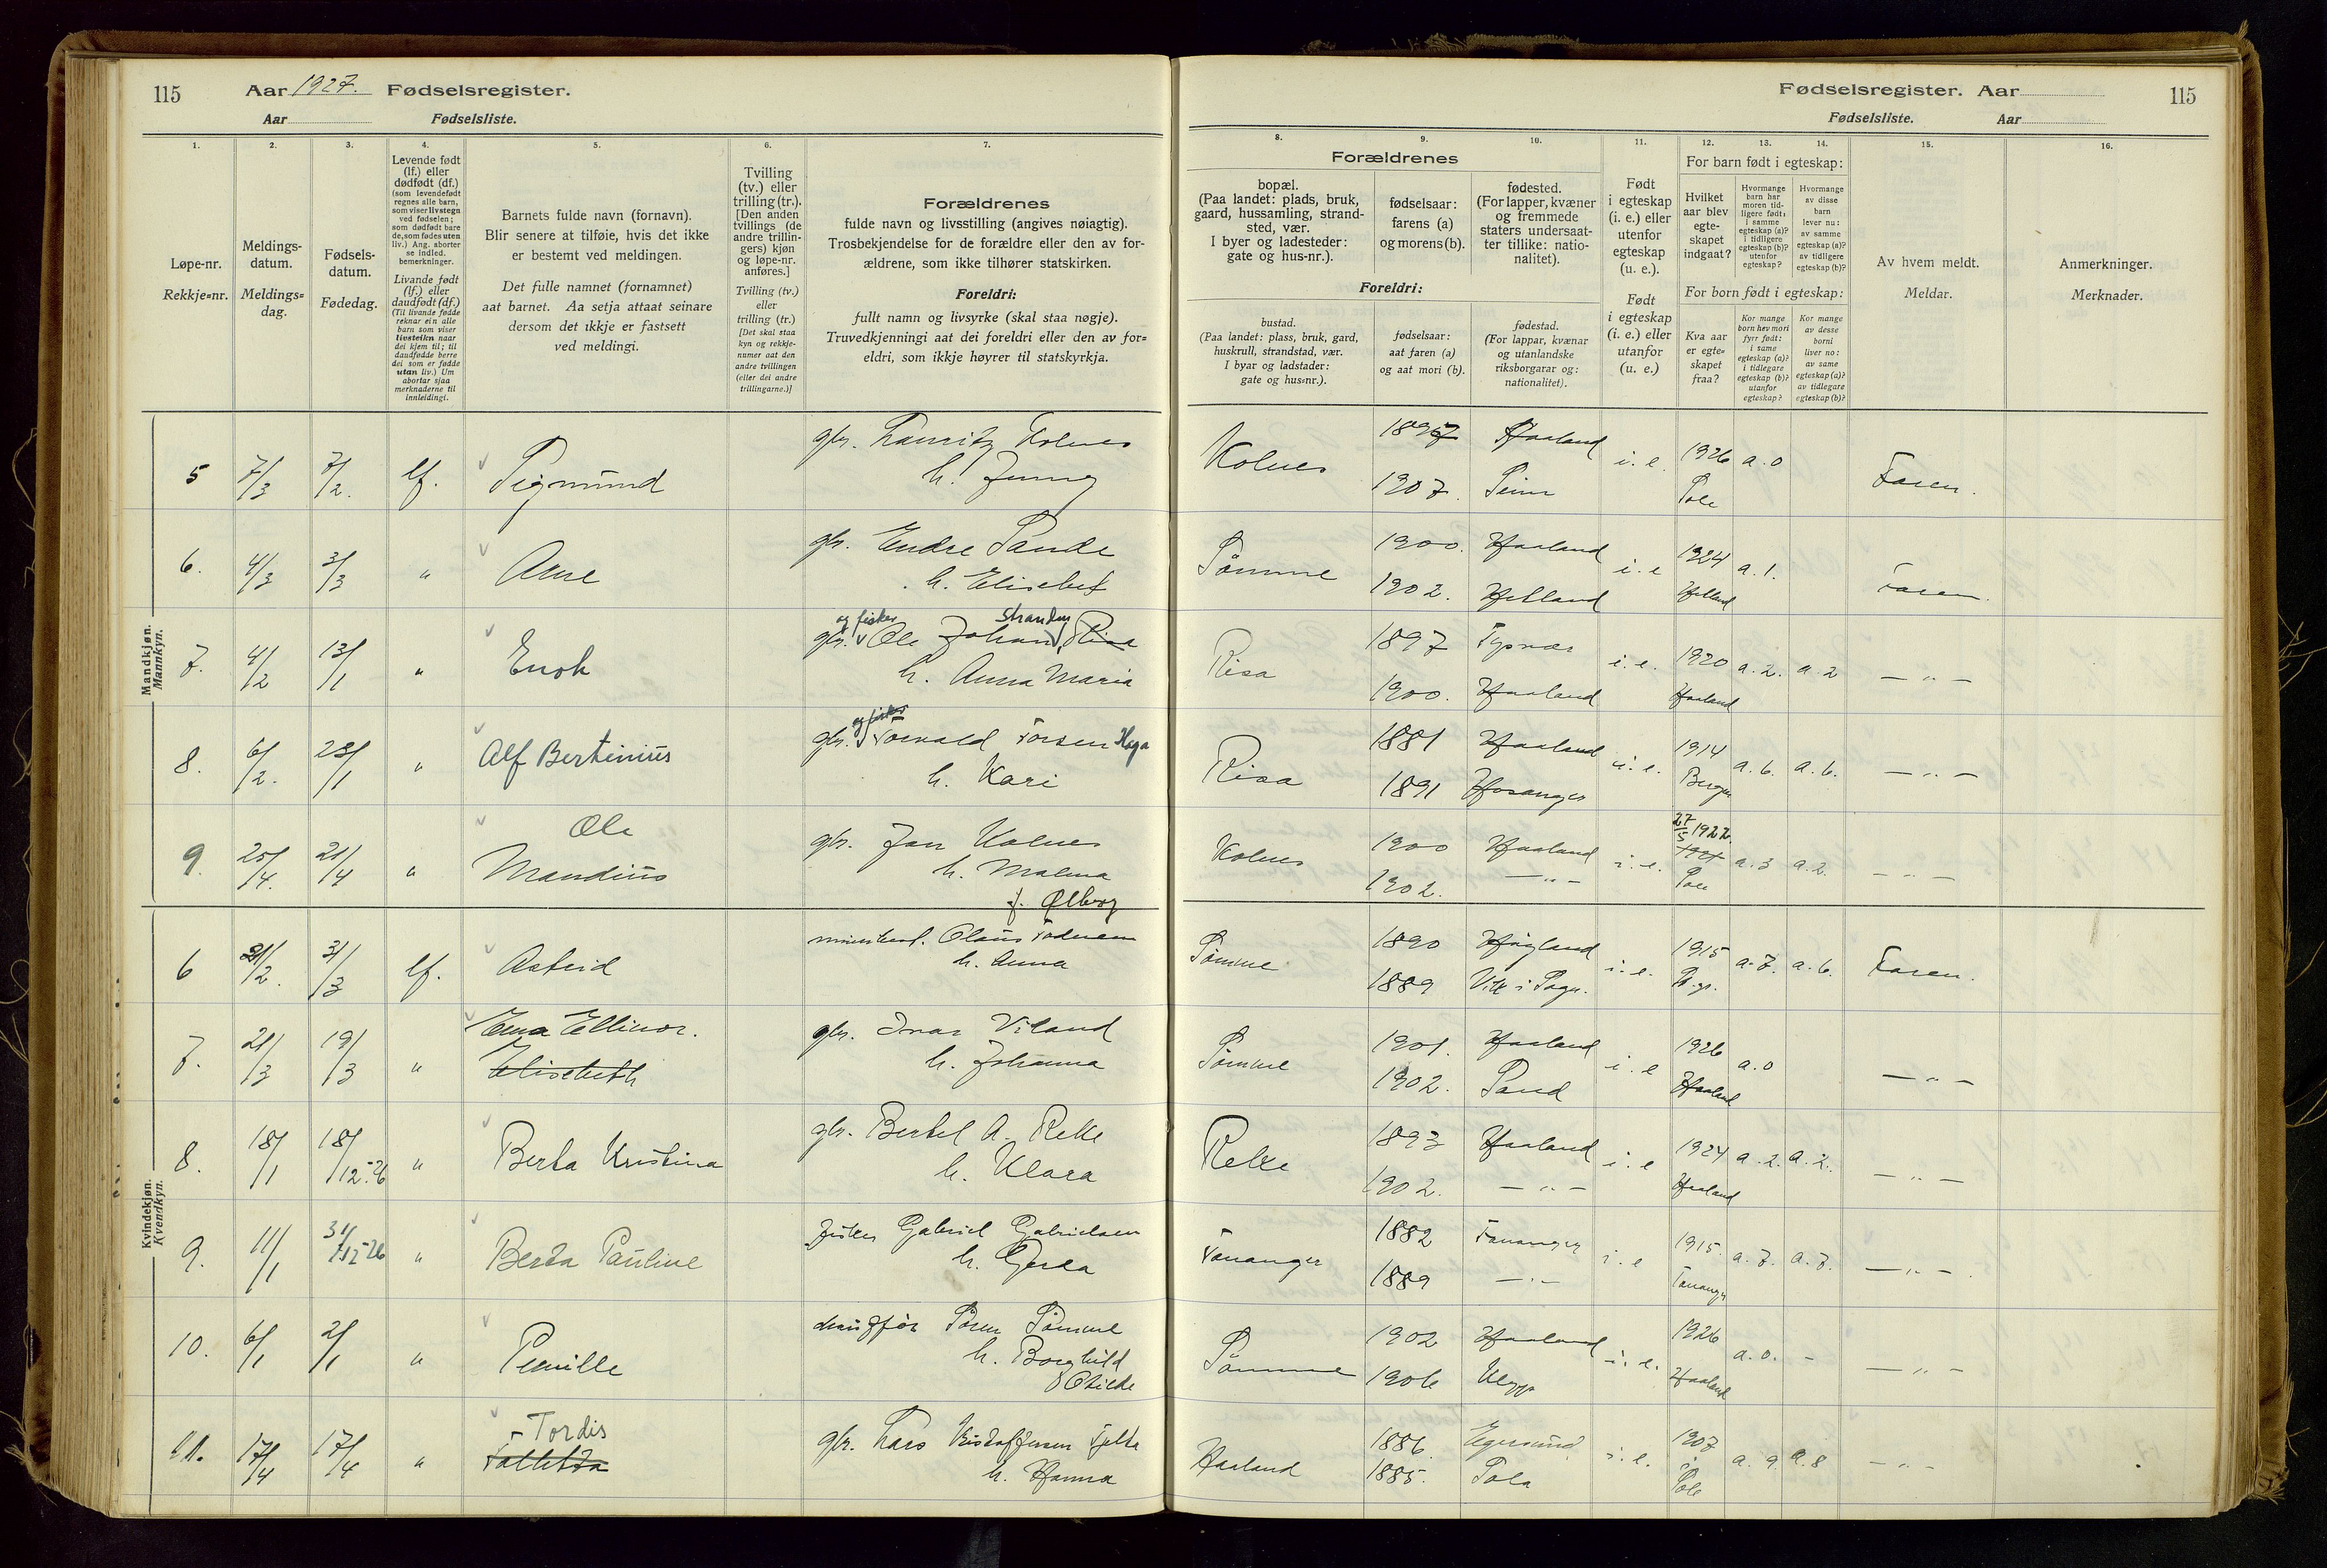 115 Aar 1927. Fødselsregister.
Aar Fødselsliste.
1.
2.
3.
4.
5.
6.
7.
Løpe-nr.
Rekkje=nr.
Meldings-
datum.
Meldings=
dag.
Fødsels-
datum.
Fødedag.
Levende født
(lf.) eller
dødfødt (df.)
(som levendefødt
regnes alle barn,
som viser livstegn
ved fødselen;
som dødfødt bare
de, som fødes uten
liv.) Ang. aborter
se indled.
bemerkninger.
Livande født
(lf.) eller
daudfødt (df.)
(Til livande fødde
reknar ein alle
barn som viser
livsteikn naar
dei kjem til; til
daudfødde berre
dei som er fødde
utan liv.) Um
abortar sjaa
merknaderne til
innleidingi.
Barnets fulde navn (fornavn).
Blir senere at tilføie, hvis det ikke
er bestemt ved meldingen.
Det fulle namnet (fornamnet)
aat barnet. Aa setja attaat seinare
dersom det ikkje er fastsett
ved meldingi.
Tvilling
(tv.) eller
trilling (tr.).
[Den anden
tvillings (de
andre trillin-
gers) kjøn
og løpe-nr.
anføres.]
Tvilling (tv.)
eller
trilling (tr.)
[Det skal staa
kyn og rekkje-
numer aat den
andre tvillingen
(eller dei andre
trillingarne.)]
Forældrenes
fulde navn og livsstilling (angives nøiagtig).
Trosbekjendelse for de forældre eller den av for-
ældrene, som ikke tilhører statskirken.
Foreldri:
fullt namn og livsyrke (skal staa nøgje).
Truvedkjenningi aat dei foreldri eller den av for=
eldri, som ikkje høyrer til statskyrkja.
Mandkjøn.
Mannkyn.
5 7/3 7/2. lf. Sigmund gbr. Lauritz Kolnes
h. Jenny
6. 4/3 3/3 " Arne gbr. Endre Sande
h. Elisebet
og fisker Strandny
7. 4/2 13/1 " Enok gbr. Ole Johan Risa
h. Anna Maria
og fisker
8. 6/2. 23/1 " Alf Bertinius gbr. Torvald Torsen Haga
h. Kari
Ole
9. 25/4. 21/4 " Mandius gbr. Jan Kolnes
h. Malena
f. Ølberg
Kvindekjøn.
Kvendkyn.
6 21/2. 31/3 lf. Astrid Olaus Todnem
h. Anna
7. 21/3 19/3 " Ema Ellinor. gbr. Ivar Viland
Elisebeth h. Johanna
8. 18/1 18/12-26 " Berta Kristina gbr. Bertel A. Reke
h. Klara
9. 11/1 31/12-26 " Berta Pauline fisker Gabriel Gabrielsen
h. Gerda
10. 6/1 2/1 " Pernille Sören Sömme
h. Borghild
Otilde
11. 17/4 17/4 " Tordis gbr. Lars Kristoffersen Tjelta
h. Hanna
Fødselsregister. Aar 115
Fødselsliste. Aar
8.
9.
10.
11.
12.
13.
14.
15.
16.
Forældrenes
bopæl.
(Paa landet: plads, bruk,
gaard, hussamling, strand-
sted, vær.
I byer og ladesteder:
gate og hus-nr.).
fødselsaar:
farens (a)
og morens (b).
fødested.
(For lapper, kvæner
og fremmede
staters undersaat-
ter tillike: natio-
nalitet).
Foreldri:
bustad.
(Paa landet: plass, bruk, gard,
huskrull, strandstad, vær.
I byar og ladstader:
gate og hus=nr.).
fødselsaar:
aat faren (a)
og aat mori (b).
fødestad.
(For lappar, kvænar
og utanlandske
riksborgarar og:
nationalitet).
Født
i egteskap
(i. e.) eller
utenfor
egteskap
(u. e.).
Født
i egteskap
(i. e.) eller
utanfor
(u. e.)
For barn født i egteskap:
Hvilket
aar blev
egte-
skapet
indgaat?
Hvormange
barn har
moren tid-
ligere født:
i samme
egteskap (a)?
i tidligere
egteskap (b)?
utenfor
egteskap?
Hvormange
av disse
barn
lever nu:
av samme
egteskap (a)?
av tidligere
egteskap (b)?
For born født i egteskap:
Kva aar
er egte=
skapet
fraa?
Kor mange
born hev mori
fyrr født:
i same
egteskap (a)?
i tidlegare
egteskap (b)?
utanfor
egteskap?
Kor mange
av desse
borni
liver no:
av same
egteskap (a)?
av tidlegare
egteskap (b)?
Av hvem meldt.
Meldar.
Anmerkninger.
Merknader.
Kolnes Haaland i. e. 1926 a. 0 Faren.
1907. Seim Sole
Sömme 1900. Haaland i. e 1924 a. 1. Faren.
1902. Hetland Hetland
Risa 1897 Tysvær i. e. 1920 a. 2. a. 2 — " —
1900. Haaland Haaland
Risa 1881 Haaland i. e. 1914 a. 6. a. 6. — " —
1891 Hosanger Bergen
27/5 1922
Kolnes 1900 Haaland i. e. a. 3 a. 2. — " —
1902. — " — Sole
Sömme 1890 Högland i. e. 1915 a. 7. a. 6. Faren.
1889 Vik i Sogn.
Sömme 1901. Haaland i. e 1926 a. 0 — " —
1902. Sand Haaland
Reke 1893 Haaland i. e 1924 a. 2. a. 2. — " —
1902. — " — Haaland
Tananger 1882 Tananger i. e 1915. a. 7. a. 7. — " —
1889 — " — Tananger
Sömme 1902 Haaland i. e. 1926 a. 0. - — " —
1906 Klepp Haaland
Haaland 1886. Egersund i. e. 1907 a. 9 a. 8 — " —
1885. Sola i Sole